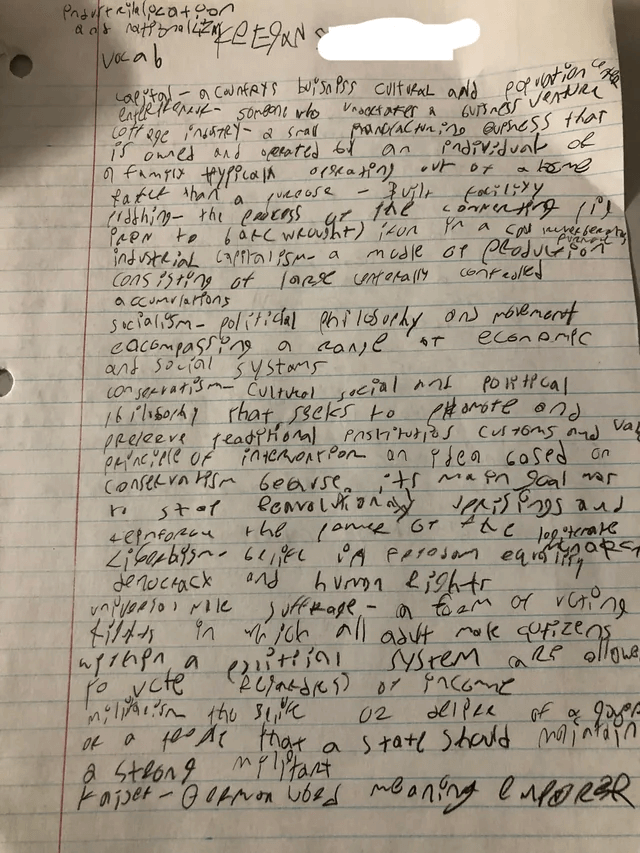 industrialization
and nationalism KEEGAN
vocab
capital - a countrys buisness cultural and population center
someone who undertakes a buisness venture
cottage industry - a small manufacturing buisness that
is owned and operated by an individual or
a family typicaly operating out of a home
rather than a purpose - built facility
puddling - the process of the converting pig
iron to bar(wrought) iron in a coal
industrial capitalism - a mode of production
consisting of large centerally controlled
accumulations
socialism - political philosophy and movement
eacompassing a range of economic
and social systems
conservatism - cultural social and political
philosophy that seeks to promote and
preserve traditional institutios customs and
principle of intervention an idea based on
conservatism its main goal was
to stop and
the power of the
belife in freedom equality
democracy and human rights
universal male suffrage - a form of voting
rights in which all adult male citizens
within a political system are allowed
to vote of income
militarism the or desire of a
or a that a state should maintain
a strong
kaiser - German word meaning emporer